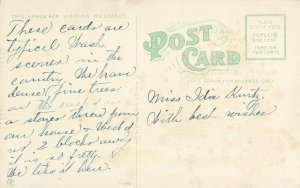 THIS SPACE FOR WRITING MESSAGES
These cards are
typical
scenes in the
country. We have
dense pine trees
a stones throw from
our house & West of
us 2 blocks away
it is so pretty.
We like it here.
POST
CARD
PLACE
DOMESTIC
ONE CENT
FOREIGN
TWO CENTS
THIS SPACE FOR ADDRESS ONLY
Miss Ida Kurtz,
With best wishes